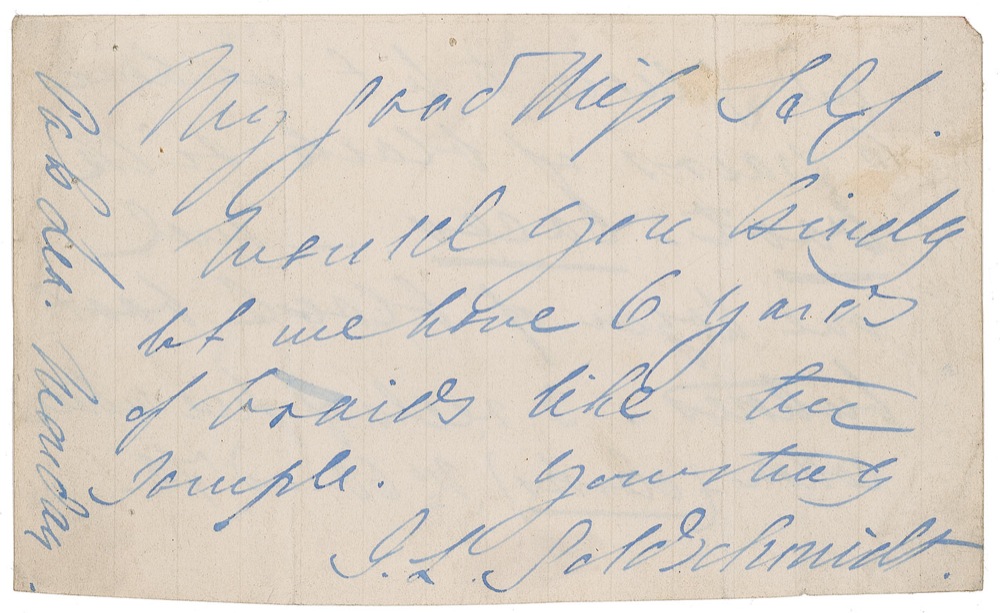 My good Miss Self.
Would you kindly
let me have 6 yards
of braids like the
sample. yours truly
J. L. Goldschmidt.
Monday.